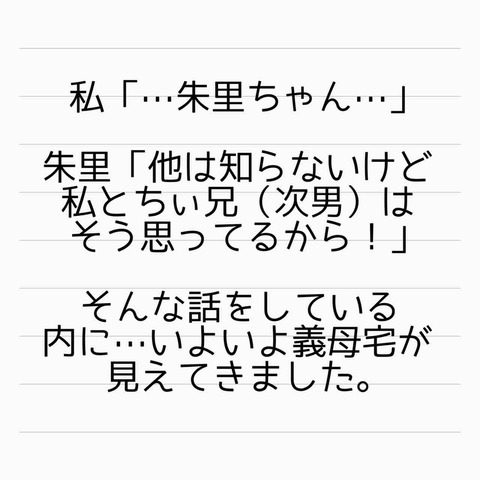 私「…朱里ちゃん…」
朱里「他は知らないけど
私とちぃ兄（次男）は
そう思ってるから！」
そんな話をしている
内に…いよいよ義母宅が
見えてきました。